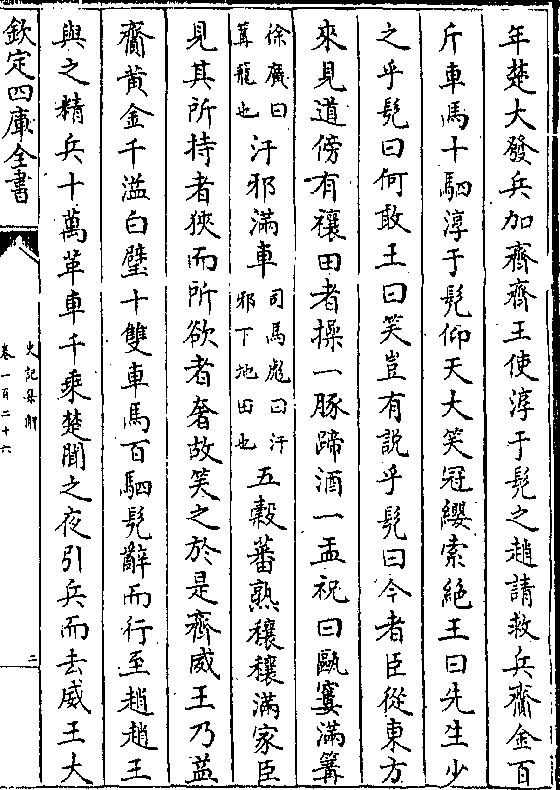 年楚大發兵加齊齊王使淳于髡之趙請救兵齎金百
斤車馬十駟淳于髡仰天大笑冠纓索絕王曰先生少
之乎髡曰何敢王曰笑豈有說乎髡曰今者臣從東方
來見道傍有禳田者操一豚蹄酒一盂祝曰甌窶滿篝
徐廣曰篝籠也汙邪滿車司馬彪曰汙邪下地田也五穀蕃熟穰穰滿家臣
見其所持者狹而所欲者奢故笑之於是齊威王乃益
齎黃金千溢白璧十雙車馬百駟髡辭而行至趙趙王
與之精兵十萬革車千乘楚聞之夜引兵而去威王大
欽定四庫全書
史記集解
卷一百二十六
二